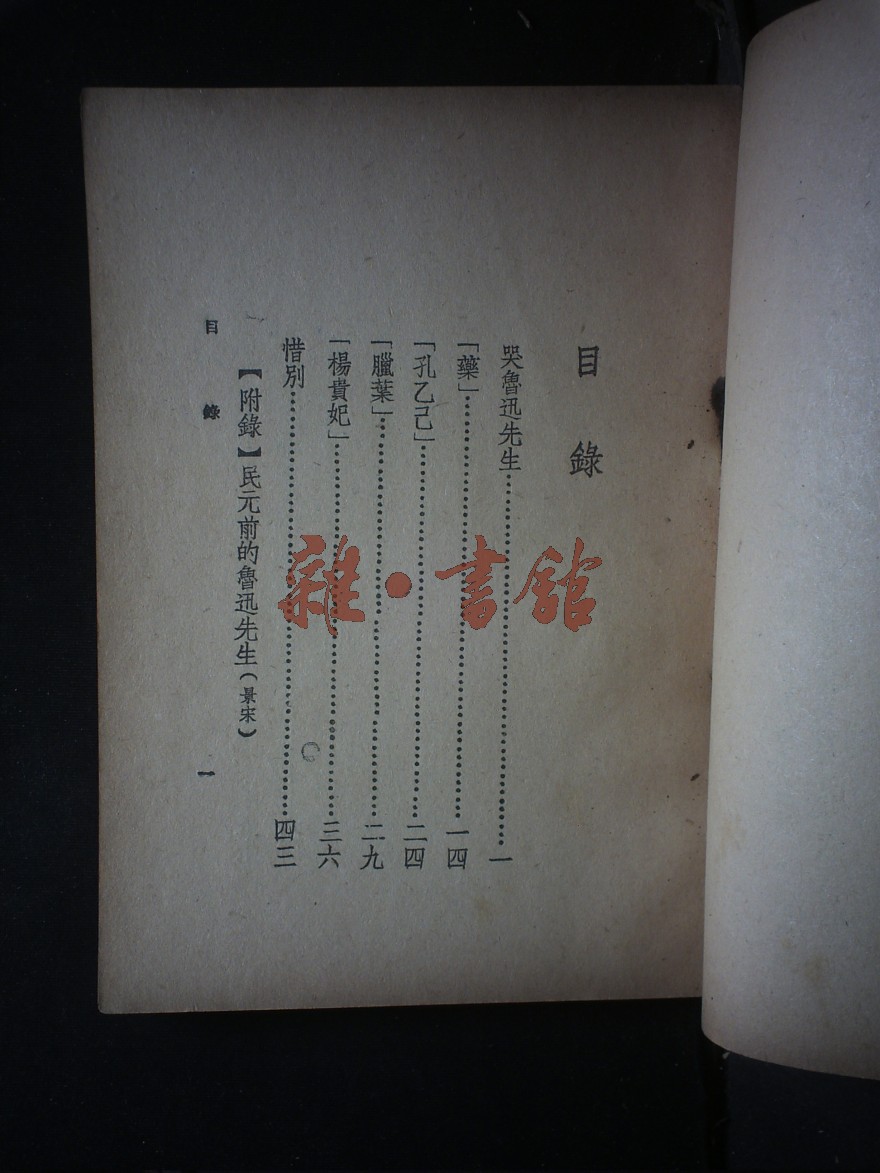 目錄
哭魯迅先生……………………一
「藥」……………………一四
「孔乙己」……………………二四
「臘葉」……………………二九
「楊貴妃」……………………三六
惜別……………………四三
【附錄】民元前的魯迅先生（景宋）
目錄 一
雜·書館